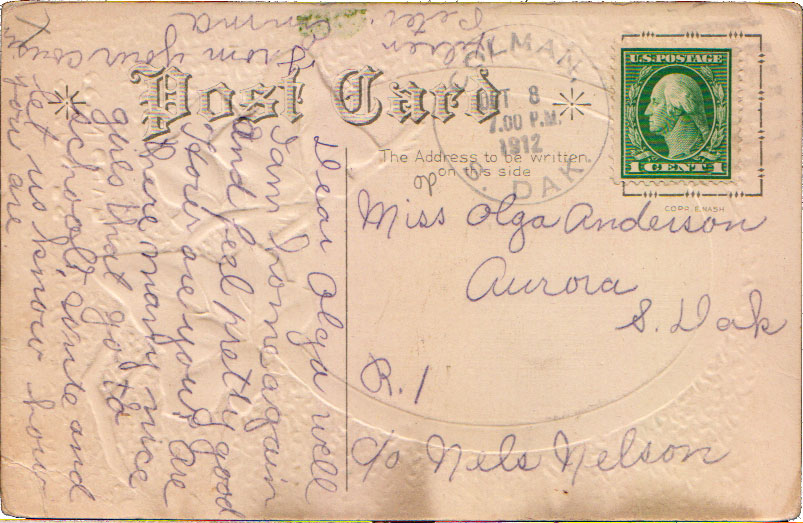 Post Card
The Address to be written
on this side
COLMAN,
OCT 8
7.00 P.M.
1912
S. DAK.
U.S. POSTAGE
1 CENT 1
COPR. E. NASH
Miss Olga Anderson
Aurora
S. Dak
R. 1
c/o Nels Nelson
Dear Olga well
I am home again
and feel pretty good
How are you, are
there many nice
girls that go to
school, write and
let us know how
you are
From your cousin
Emma
Peter